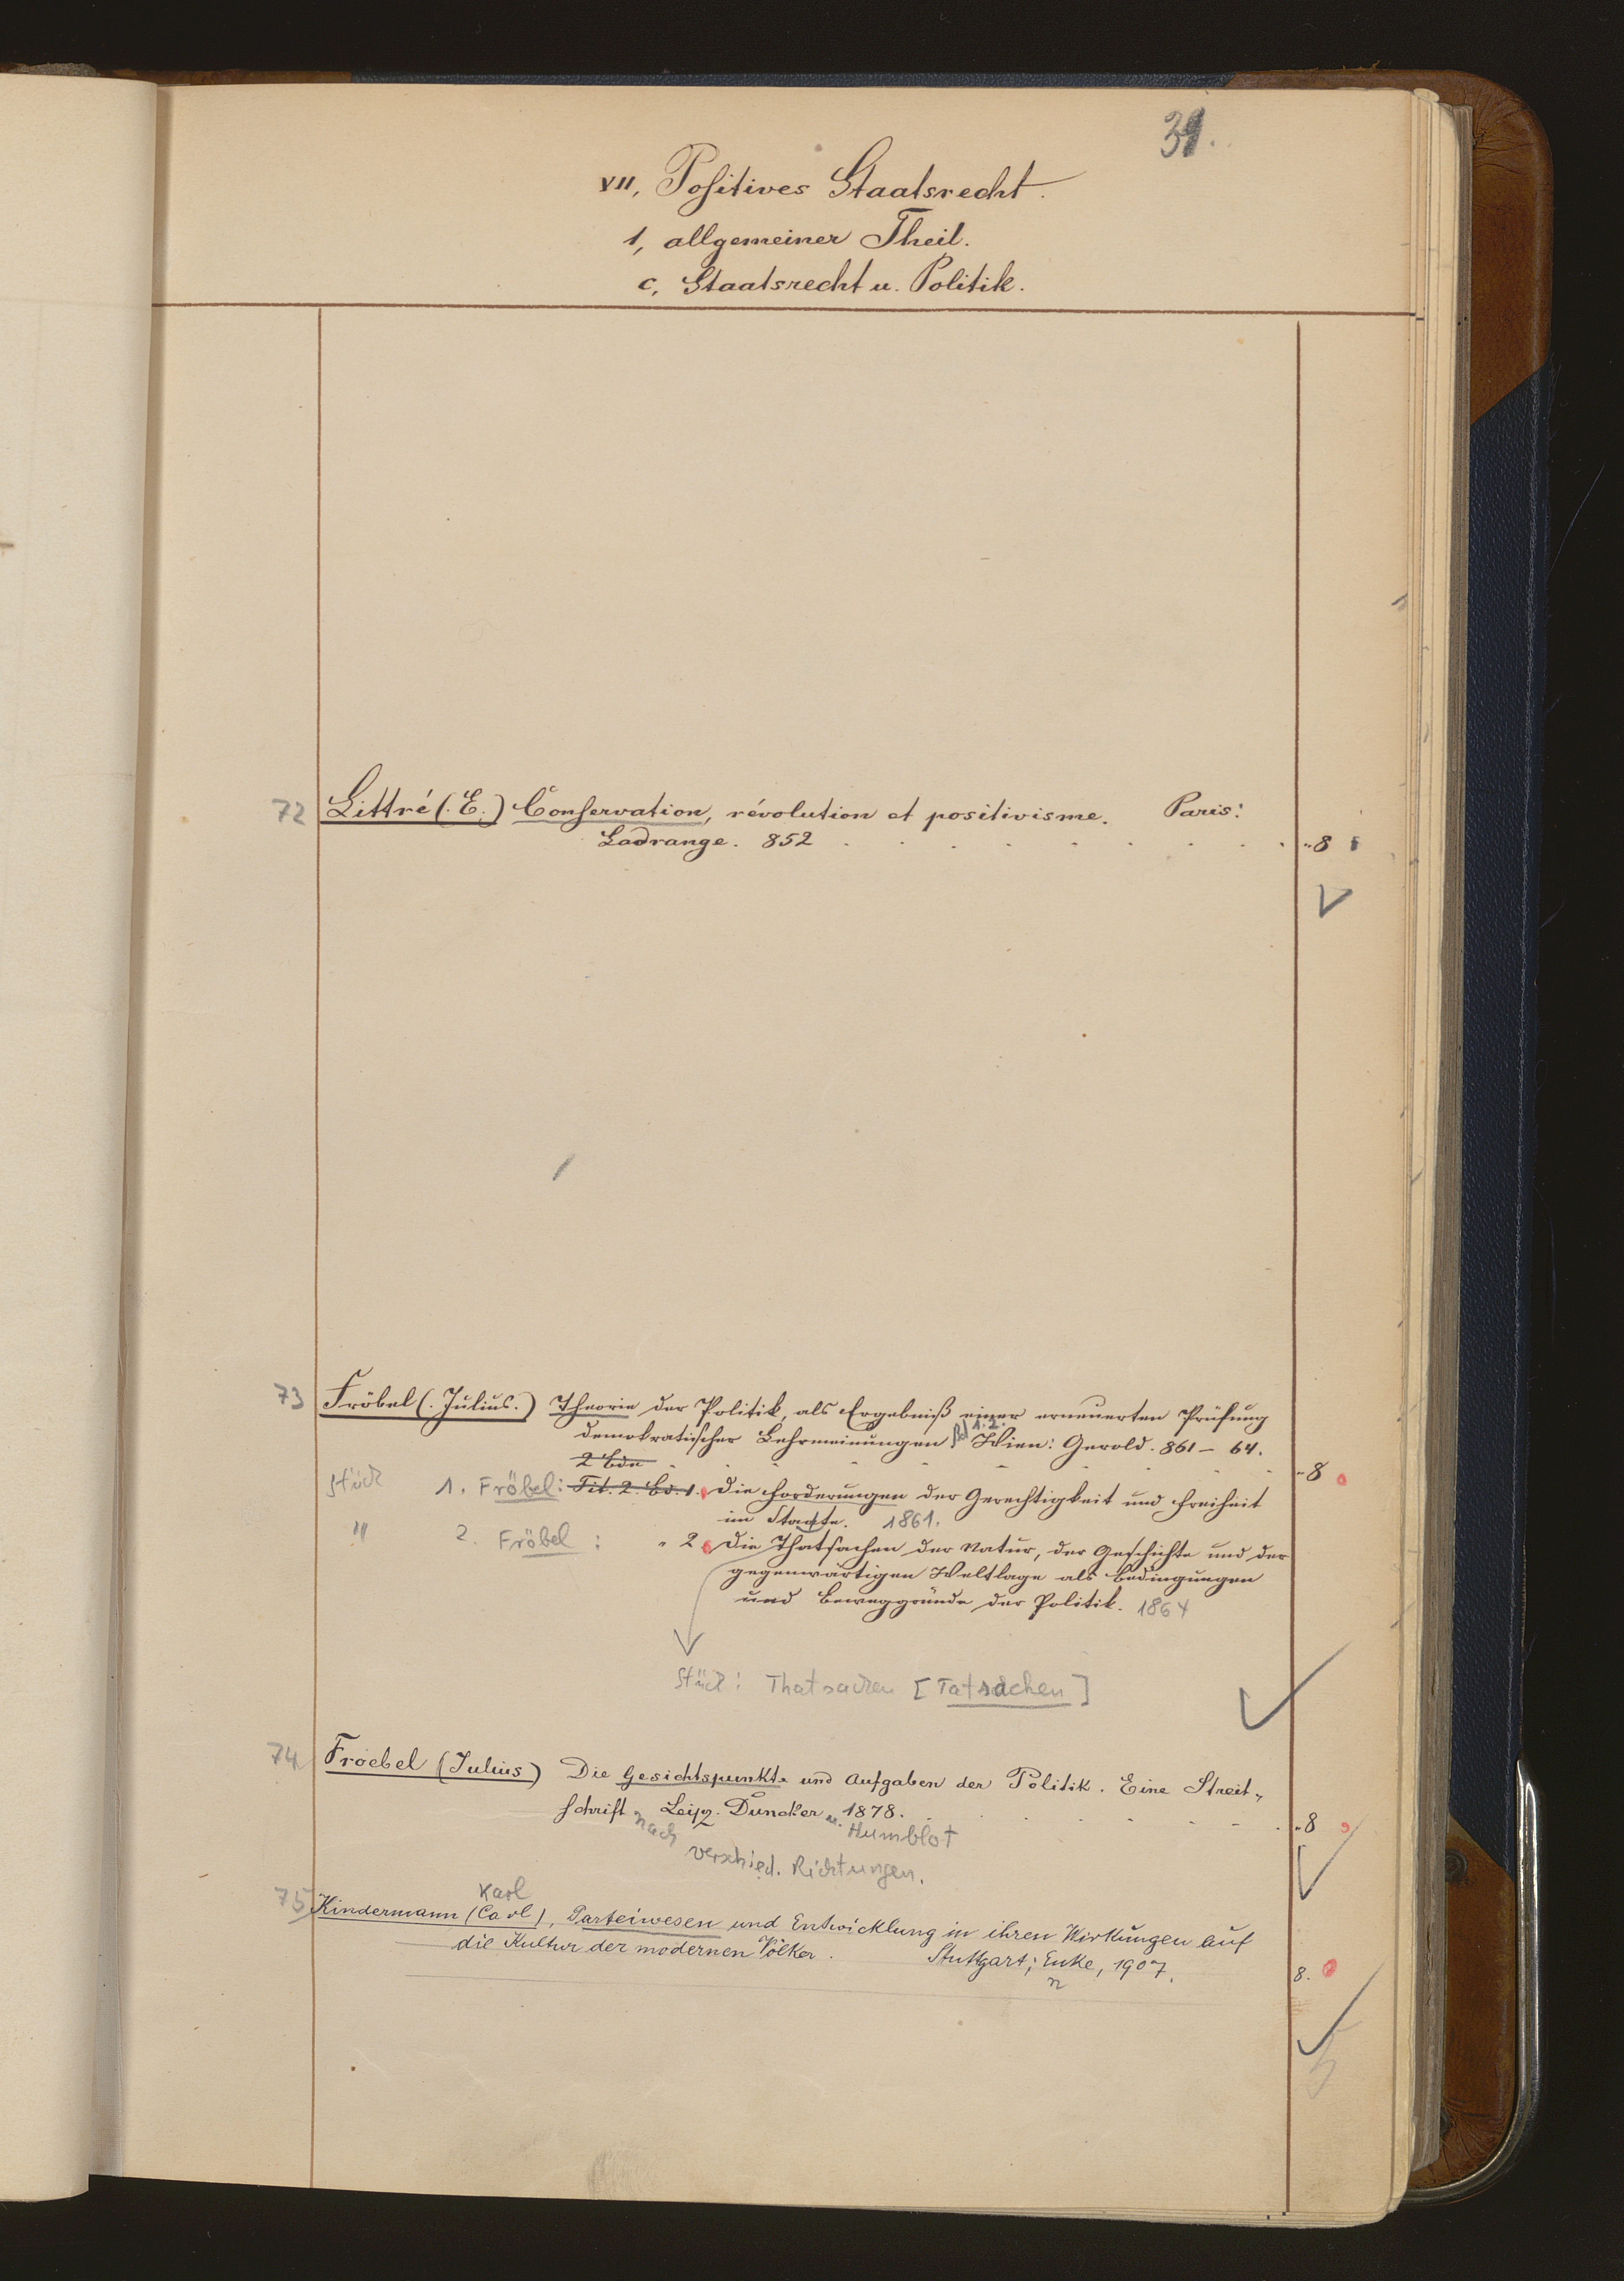 31.
VII, Positives Staatsrecht.
1, allgemeiner Theil.
c, Staatsrecht u. Politik.
72 Littré (. E.) Conservation, révolution et positivisme. Paris:
Ladrange. 852 . . . . . . . . "8
73 Fröbel (. Julius.) Theorie der Politik, als Ergebniß einer erneuerten Prüfung
demokratischer Lehrmeinungen Bd 1.2. Wien: Gerold. 861 – 64.
2 Bde . . . . . . "8
Stück 1. Fröbel: Tit. 2. Bd. 1. Die Forderungen der Gerechtigkeit und Freiheit
im Staate. 1861.
" 2. Fröbel : " 2. Die Thatsachen der Natur, der Geschichte und der
gegenwärtigen Weltlage als Bedingungen
und Beweggründe der Politik. 1864
Stück: Thatsachen [Tatsachen]
74 Froebel (Julius) Die Gesichtspunkte und Aufgaben der Politik. Eine Streit-
schrift Leipz. Duncker u. 1878. . . . . . "8
nach Humblot
verschied. Richtungen.
Karl
75 Kindermann (Carl), Parteiwesen und Entwicklung in ihren Wirkungen auf
die Kultur der modernen Völker. Stuttgart; Enke, 1907. 8.
n